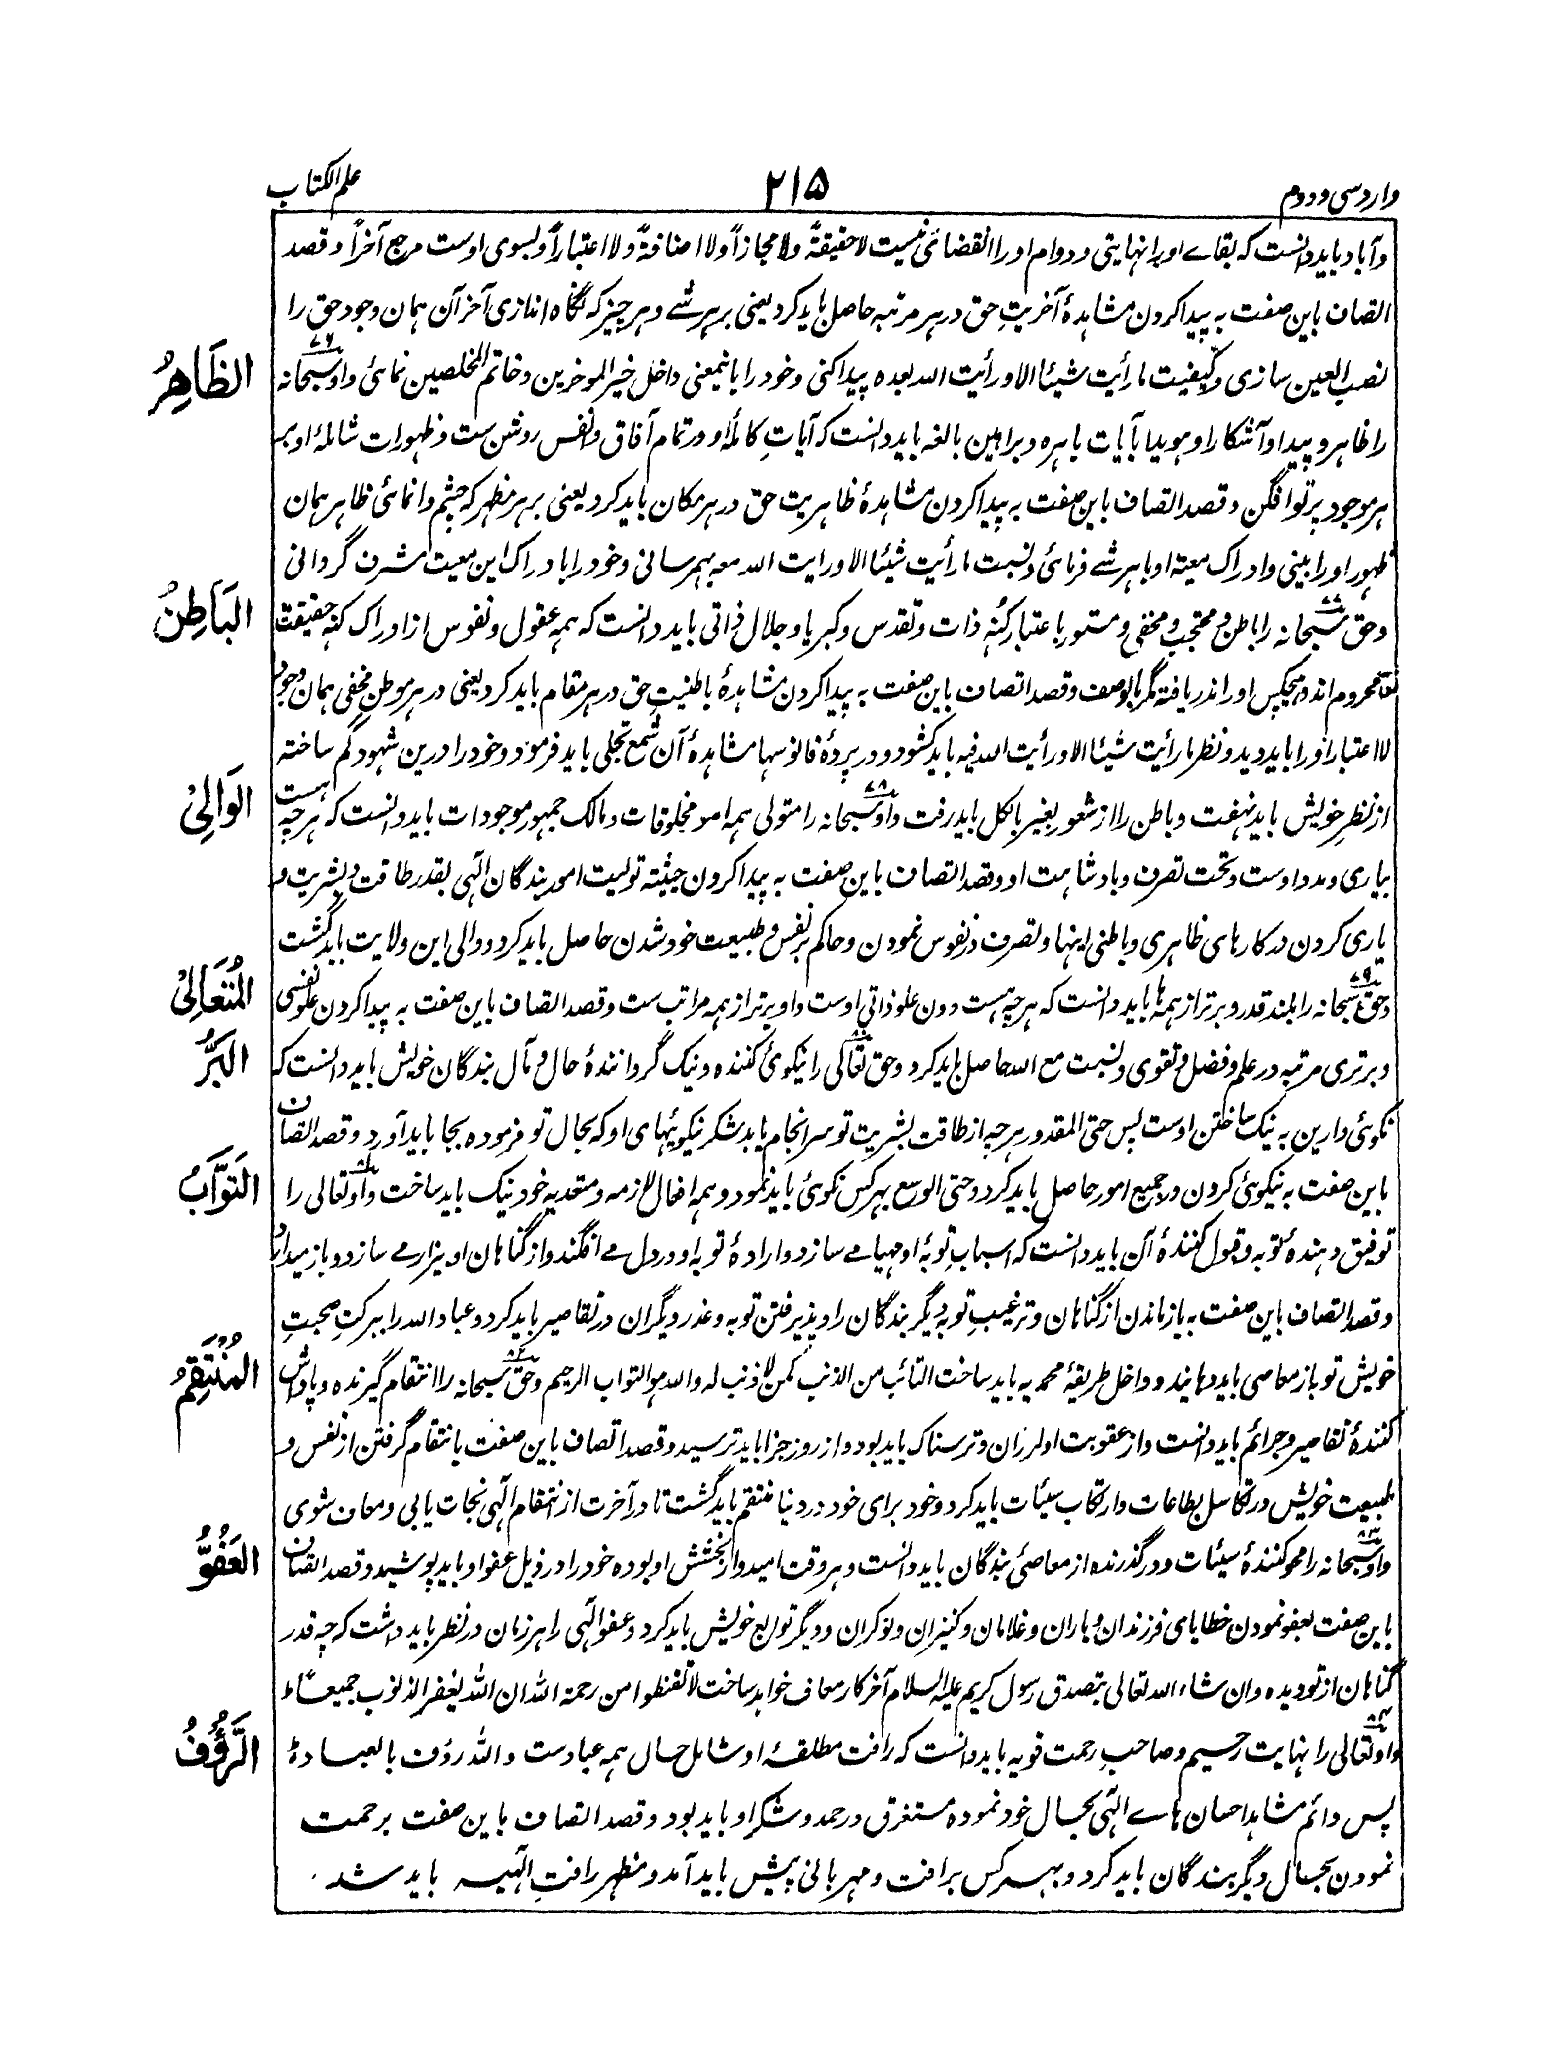 وارد سی و دوم
۲۱۵
علم الکتاب
و آباد باید دانست که بقاے او را نہایتی و دوام او را انقضائی نیست لا حقیقةً ولا مجازاً ولا اضافةً ولا اعتباراً و بسوی اوست مرجع آخراً و قصد
اتصاف باین صفت بہ پیدا کردن مشاہدۂ آخریتِ حق در ہر مرتبہ حاصل باید کرد یعنی بر ہر شے و ہر چیز کہ نگاہ اندازی آخر آن ہمان وجود حق را
نصب العین سازی و کیفیت ما رأیت شیئا الا و رأیت اللہ بعدہ پیدا کنی و خود را باینمعنی داخل خیر الموخرین و خاتم المخلصین نمائی و او سبحانہ
۷۶
الظَّاهِرُ
را ظاہر و پیدا و آشکارا و ہویدا بآیات باہرہ و براہین بالغہ باید دانست کہ آیاتِ کاملۂ او در تمام آفاق و انفس روشن ست و ظہورات شاملۂ او بر
ہر موجود پرتو افگن و قصد اتصاف باین صفت بہ پیدا کردن مشاہدۂ ظاہریت حق در ہر مکان باید کرد یعنی بر ہر مظہر کہ چشم وا نمائی ظاہر ہمان
ظہور او را بینی و ادراک معیتہ او با ہر شے فرمائی و نسبت ما رأیت شیئا الا و رایت اللہ معہ بہم رسانی و خود را بادراک این معیت مشرف گردانی
۷۷
البَاطِنُ
و حق سبحانہ را باطن و محتجب و مخفی و مستور باعتبار کُنہ ذات و تقدس و کبریا و جلال ذاتی باید دانست کہ ہمہ عقول و نفوس از ادراک کنہ حقیقت
تعالے محروم اند و ہیچکس او را در نیافتہ مگر بالوصف و قصد اتصاف باین صفت بہ پیدا کردن مشاہدۂ باطنیتِ حق در ہر مقام باید کرد یعنی در ہر موطن مخفی ہمان وجود
لا اعتبار او را باید دید و نظر ما رأیت شیئا الا و رأیت اللہ فیہ باید کشود و در پردۂ فانوسہا مشاہدۂ آن شمع تجلی باید فرمود و خود را درین شہود گم ساختہ
۷۸
الوَالِیْ
از نظر خویش باید نہفت و باطن را از شعور بغیر بالکل باید رفت و او سبحانہ را متولی ہمہ امور مخلوقات و مالک جمہور موجودات باید دانست کہ ہر چہ ہست
بیاری و مدد اوست و تحت تصرف و بادشاہت او و قصد اتصاف باین صفت بہ پیدا کردن حیثیتہ تولیت امور بندگان الٰہی بقدر طاقت بشریت و
یاری کردن در کارہای ظاہری و باطنی اینہا و تصرف در نفوس نمودن و حاکم بر نفس و طبیعت خود شدن حاصل باید کرد و والی این ولایت باید گشت
۷۹
المُتَعَالِیْ
و حق سبحانہ را بلند قدر و برتر از ہمہ ہا باید دانست کہ ہر چہ ہست دون علو ذاتی اوست و او برتر از ہمہ مراتب ست و قصد اتصاف باین صفت بہ پیدا کردن علو نفسی
۸۰
البَرُّ
و برتری مرتبہ در علم و فضل و تقوی و نسبت مع اللہ حاصل باید کرد و حق تعالٰی را نیکوئی کنندہ و نیک گردانندۂ حال و مآل بندگان خویش باید دانست کہ
نکوئی دارین بہ نیک ساختن اوست پس حتی المقدور ہر چہ از طاقت بشریت تو سر انجام یابد شکر نیکوئیہای او کہ بحال تو فرمودہ بجا باید آورد و قصد اتصاف
۸۱
التَّوَّابُ
باین صفت بہ نیکوئی کردن در جمیع امور حاصل باید کرد و حتی الوسع بہر کس نکوئی باید نمود و ہمہ افعال لازمہ و متعدیہ خود نیک باید ساخت و او تعالی را
توفیق دہندۂ توبہ و قبول کنندۂ آن باید دانست کہ اسبابِ توبۂ او مہیا مے سازد و ارادۂ توبہ او در دل مے افگند و از گناہان او بیزار مے سازد و باز میدارد
و قصد اتصاف باین صفت بہ باز ماندن از گناہان و ترغیبِ توبہ بہ دیگر بندگان را و پذیرفتن توبہ و عذر دیگران در تقاصیر باید کرد و عباد اللہ را ببرکتِ صحبتِ
۸۲
المُنْتَقِمُ
خویش توبہ از معاصی باید دہانید و داخل طریقۂ محمدیہ باید ساخت التائب من الذنب کمن لا ذنب لہ واللہ ہو التواب الرحیم و حق سبحانہ را انتقام گیرندہ و پاداش
کنندۂ تقاصیر و جرائم باید دانست و از عقوبت او لرزان و ترسناک باید بود و از روز جزا باید ترسید و قصد اتصاف باین صفت بانتقام گرفتن از نفس و
طبیعت خویش در تکاسل بطاعات و ارتکاب سیئات باید کرد و خود برای خود در دنیا منتقم باید گشت تا در آخرت از انتقام الٰہی نجات یابی و معاف شوی
۸۳
العَفُوُّ
و او سبحانہ را محو کنندۂ سیئات و در گذرندہ از معاصی بندگان باید دانست و ہر وقت امیدوار بخشش او بودہ خود را در ذیل عفو او باید پوشید و قصد اتصاف
باین صفت بعفو نمودن خطایای فرزندان و یاران و غلامان و کنیزان و نوکران و دیگر توابع خویش باید کرد و عفو الٰہی را ہر زمان در نظر باید داشت کہ چہ قدر
گناہان از تو دیدہ و ان شاء اللہ تعالی بتصدق رسول کریم علیہ السلام آخر کار معاف خواہد ساخت لا تقنطوا من رحمۃ اللہ ان اللہ یغفر الذنوب جمیعاً ط
۸۴
الرَّؤُفُ
و او تعالی را نہایت رحیم و صاحبِ رحمت قویہ باید دانست کہ رافت مطلقۂ او شامل حال ہمہ عباد ست واللہ رؤف بالعباد ۃ
پس دائم مشاہد احسان ہاے الٰہی بحال خود نمودہ مستغرق در حمد و شکر او باید بود و قصد اتصاف باین صفت برحمت
نمودن بحال دیگر بندگان باید کرد و بہر کس برافت و مہربانی پیش باید آمد و مظہر رافتِ الٰہیہ باید شد .